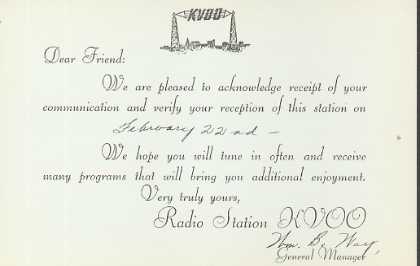 KVOO
Dear Friend:
We are pleased to acknowledge receipt of your
communication and verify your reception of this station on
February 22nd -
We hope you will tune in often and receive
many programs that will bring you additional enjoyment.
Very truly yours,
Radio Station KVOO
Wm. B. Way,
General Manager